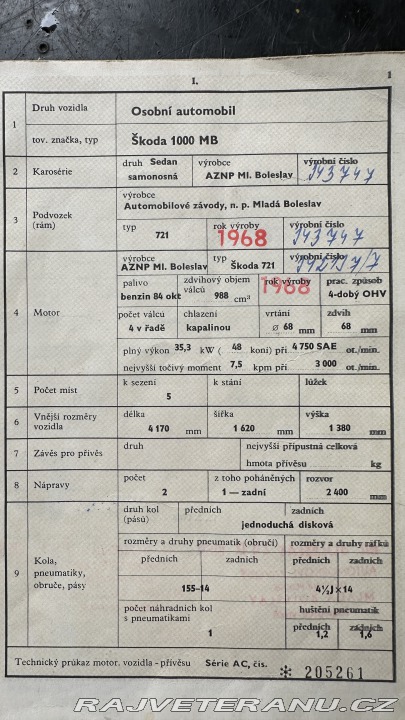 I. 1
1 Druh vozidla Osobní automobil
tov. značka, typ Škoda 1000 MB
2 Karosérie druh Sedan samonosná výrobce AZNP Ml. Boleslav výrobní číslo 143747
3 Podvozek (rám) výrobce
Automobilové závody, n. p. Mladá Boleslav
typ 721 rok výroby 1968 výrobní číslo 143747
4 Motor výrobce AZNP Ml. Boleslav typ Škoda 721 výrobní číslo
palivo benzin 84 okt zdvihový objem válců 988 cm³ rok výroby 1968 prac. způsob 4-dobý OHV
počet válců 4 v řadě chlazení kapalinou vrtání ø 68 mm zdvih 68 mm
plný výkon 35,3 kW ( 48 koní) při 4 750 SAE ot./min.
nejvyšší točivý moment 7,5 kpm při 3 000 ot./min.
5 Počet míst k sezení 5 k stání lůžek
6 Vnější rozměry vozidla délka 4 170 mm šířka 1 620 mm výška 1 380 mm
7 Závěs pro přívěs druh nejvyšší přípustná celková
hmota přívěsu kg
8 Nápravy počet 2 z toho poháněných 1 — zadní rozvor 2 400 mm
9 Kola, pneumatiky, obruče, pásy druh kol (pásů) předních zadních
jednoduchá disková
rozměry a druhy pneumatik (obručí) rozměry a druhy ráfků
předních zadních předních zadních
155–14 4½J×14
počet náhradních kol s pneumatikami 1 huštění pneumatik
předních 1,2 zadních 1,6
Technický průkaz motor. vozidla - přívěsu Série AC, čís. * 205261
RAJVETERANU.CZ